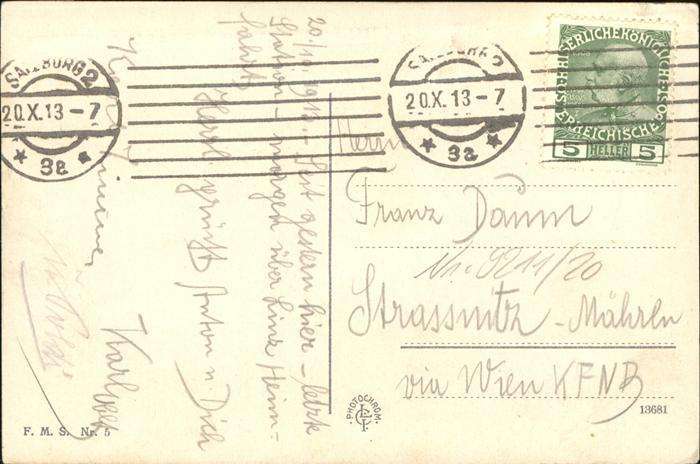 SALZBURG 2
20.X.13-7
* 3a *
SALZBURG 2
20.X.13-7
* 3a *
KAISERLICHE KÖNIGLICHE
ÖSTERREICHISCHE
5 HELLER 5
20/X. 1913. – Seit gestern hier – letzte
Station – morgen über Linz Heim-
fahrt
Herzl. grüßt Anton u. Dich
Karl
Herrn
Franz Daum
Nr. 8211/20
Strassnitz – Mähren
via Wien KFNB
PHOTOCHROM.
13681
F. M. S. Nr. 5